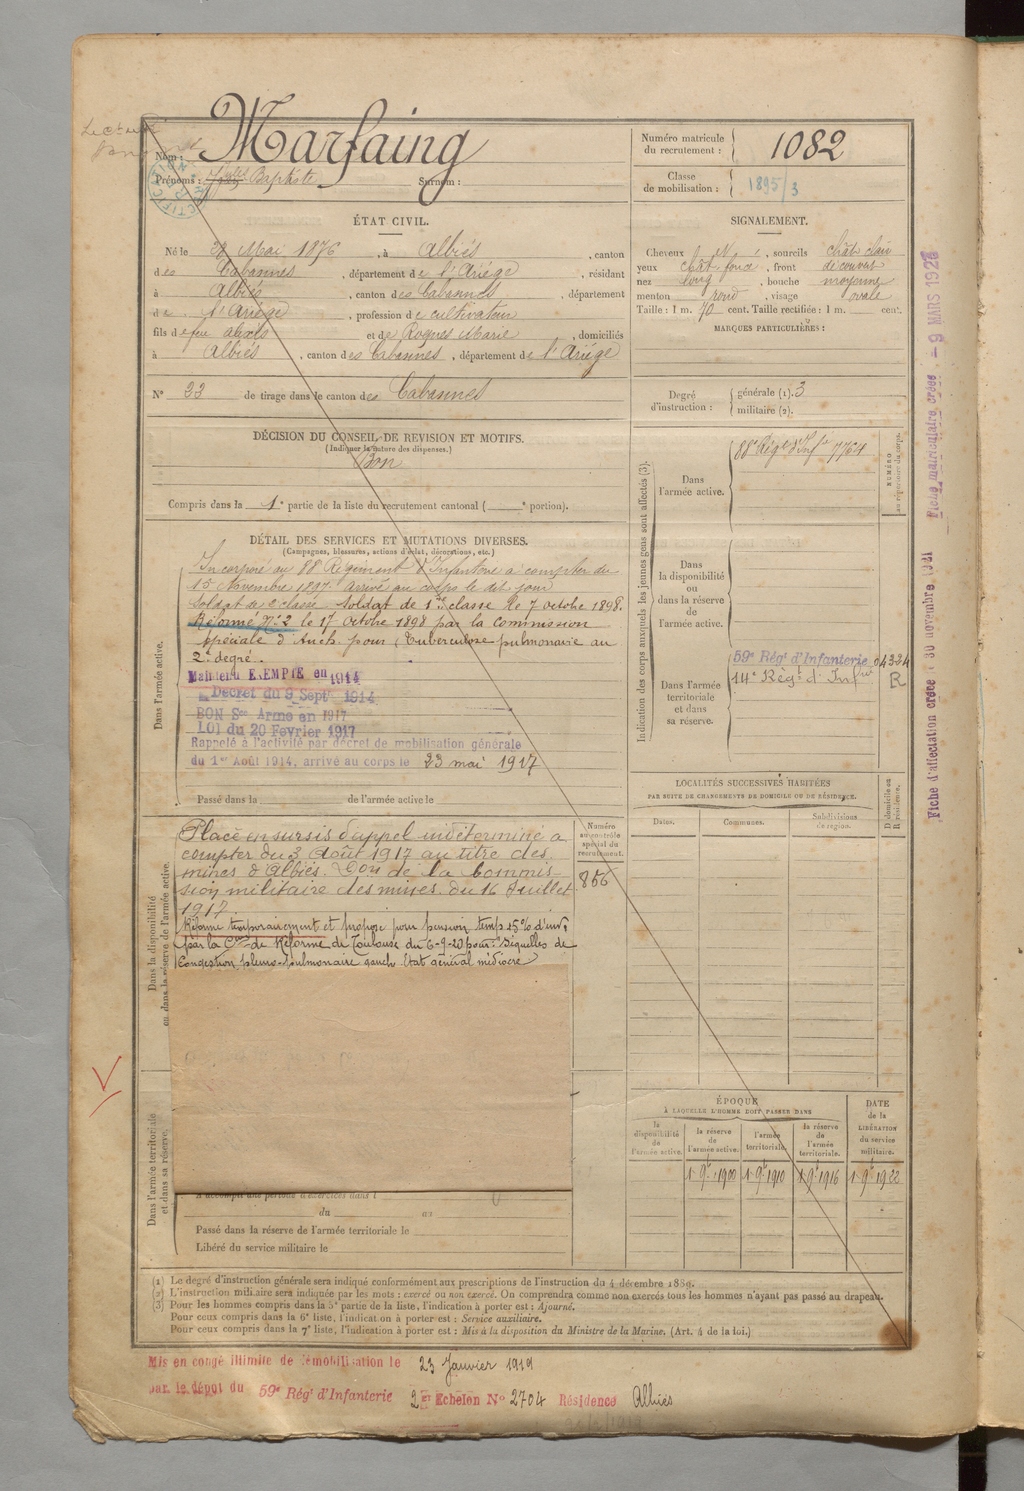 Marfaing
Nom :
Prénoms : Baptiste Surnom :
RECTIFICATION
Numéro matricule
du recrutement : 1082
Classe
de mobilisation : 1895/3
ÉTAT CIVIL.
Né le 22 Mai 1876, à Albiés, canton
des Cabannes, département de l'Ariége, résidant
à Albiés, canton des Cabannes, département
de l'Ariége, profession de cultivateur
fils de feu alexis et de Roques Marie, domiciliés
à Albiés, canton des Cabannes, département de l'Ariége
N° 33 de tirage dans le canton des Cabannes
SIGNALEMENT.
Cheveux N, sourcils chât clair
yeux chât foncé, front découvert
nez long, bouche moyenne
menton rond, visage ovale
Taille : 1 m. 70 cent. Taille rectifiée : 1 m. cent.
MARQUES PARTICULIÈRES :
Degré
d'instruction :
générale (1). 3
militaire (2).
DÉCISION DU CONSEIL DE REVISION ET MOTIFS.
(Indiquer la nature des dispenses.)
Bon
Compris dans la 1e partie de la liste du recrutement cantonal ( e portion).
DÉTAIL DES SERVICES ET MUTATIONS DIVERSES.
(Campagnes, blessures, actions d'éclat, décorations, etc.)
Dans l'armée active.
Incorporé au 88 Régiment d'Infanterie à compter du
15 Novembre 1897. Arrivé au corps le dit jour
Soldat de 2e classe. Soldat de 1re classe le 7 octobre 1898.
Réformé N° 2 le 17 octobre 1898 par la commission
spéciale d'Auch pour : Tuberculose pulmonaire au
2e degré.
Maintenu EXEMPTE en 1914
Décret du 9 Septre 1914
BON Sce Armé en 1917
LOI du 20 Février 1917
Rappelé à l'activité par décret de mobilisation générale
du 1er Août 1914, arrivé au corps le 23 mai 1917
Passé dans la de l'armée active le
Indication des corps auxquels les jeunes gens sont affectés (3).
Dans
l'armée active.
88e Régt d'Infie 7764
NUMÉRO
au répertoire du corps.
Dans
la disponibilité
ou
dans la réserve
de
l'armée active.
Dans l'armée
territoriale
et dans
sa réserve.
59e Régt d'Infanterie 04334
14e Régt d'Infie R
LOCALITÉS SUCCESSIVES HABITÉES
PAR SUITE DE CHANGEMENTS DE DOMICILE OU DE RÉSIDENCE.
D domicile ou
R résidence.
Dates.
Communes.
Subdivisions
de région.
Dans la disponibilité
ou dans la réserve de l'armée active.
Placé en sursis d'appel indéterminé à
compter du 3 Août 1917 au titre des
mines d'Albiés. Don de la Commis-
sion militaire des mines du 16 Juillet
1917.
Numéro
au contrôle
spécial du
recrutement.
856
Réformé temporairement et proposé pour pension temp 15% d'invté
par la Con de Réforme de Toulouse du 6-9-20 pour : Séquelles de
Congestion pleuro-pulmonaire gauche. Etat général médiocre
Dans l'armée territoriale
et dans sa réserve.
A accompli une période d'exercices dans l
du au
Passé dans la réserve de l'armée territoriale le
Libéré du service militaire le
ÉPOQUE
À LAQUELLE L'HOMME DOIT PASSER DANS
la
disponibilité
de
l'armée active.
la réserve
de
l'armée active.
l'armée
territoriale.
la réserve
de
l'armée
territoriale.
DATE
de la
LIBÉRATION
du service
militaire.
1 9bre 1900
1 9bre 1910
1 9bre 1916
1 9bre 1922
(1) Le degré d'instruction générale sera indiqué conformément aux prescriptions de l'instruction du 4 décembre 1889.
(2) L'instruction militaire sera indiquée par les mots : exercé ou non exercé. On comprendra comme non exercés tous les hommes n'ayant pas passé au drapeau.
(3) Pour les hommes compris dans la 5e partie de la liste, l'indication à porter est : Ajourné.
Pour ceux compris dans la 6e liste, l'indication à porter est : Service auxiliaire.
Pour ceux compris dans la 7e liste, l'indication à porter est : Mis à la disposition du Ministre de la Marine. (Art. 4 de la loi.)
Mis en congé illimité de démobilisation le 23 Janvier 1919
par le dépôt du 59e Régt d'Infanterie 2e Echelon N° 2704 Résidence Albiès
Fiche d'affectation créée le 30 novembre 1921
Fiche matriculaire créée - 9 MARS 1927